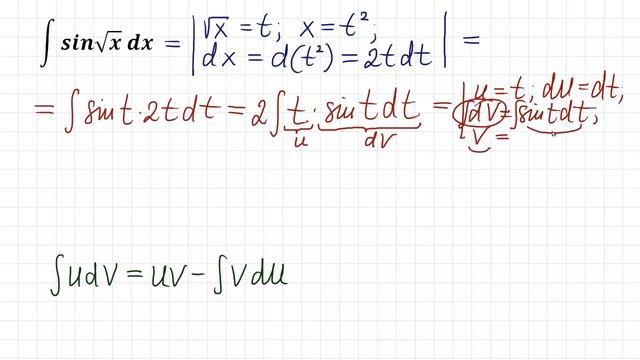 ∫ sin√x dx = | √x = t; x = t²;
dx = d(t²) = 2t dt | =
= ∫ sin t · 2t dt = 2 ∫ t · sin t dt = | u = t; du = dt,
∫dv = ∫sin t dt,
u dv v =
∫ u dv = uv − ∫ v du